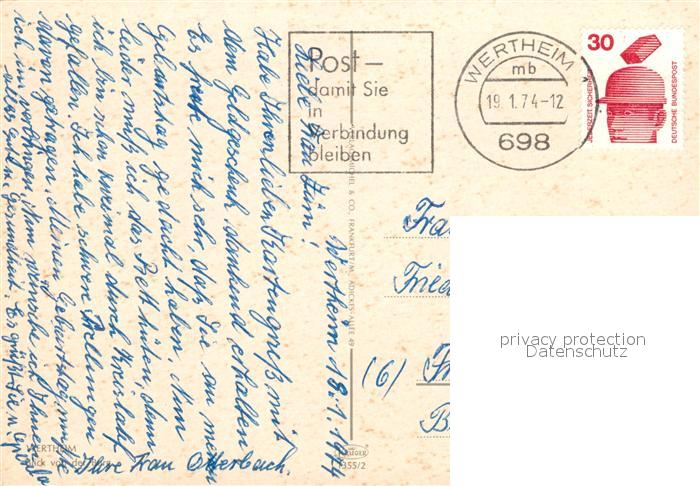 Wertheim 18.1.1974
Liebe Frau
Habe Ihren lieben Kartengruß mit
dem Geldgeschenk dankend erhalten
Es freute mich sehr, daß Sie an meinen
Geburtstag gedacht haben. Nun
leider muß ich das Bett hüten, denn
ich bin schon zweimal durch Kreislauf
gefallen. Ich habe schwere Prellungen
davon getragen. Meinen Geburtstag mußte
ich im verbringen. Nun wünsche ich Ihnen
alles Gute u. Gesundheit. Es grüßt Sie
Ihre Frau Otterbach.
Post –
damit Sie
in
Verbindung
bleiben
WERTHEIM
mb
19.1.74-12
698
30
JEDERZEIT SICHERHEIT
DEUTSCHE BUNDESPOST
& CO., FRANKFURT/M. ADICKES-ALLEE 49
(6)
WERTHEIM
Blick von der Burg
1355/2
privacy protection
Datenschutz